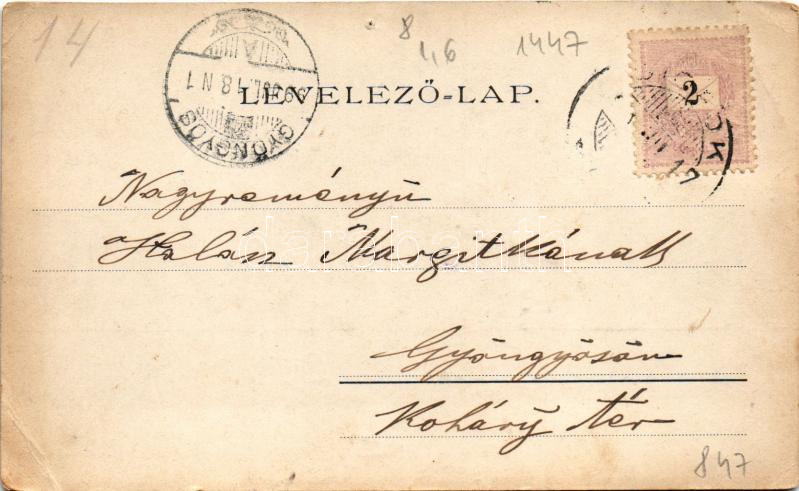 14
8
1,6
1447
GYÖNGYÖS
LEVELEZŐ-LAP.
2
Nagyreményű
Halász Margitkának
darabanth
Gyöngyösön
Koháry tér
847